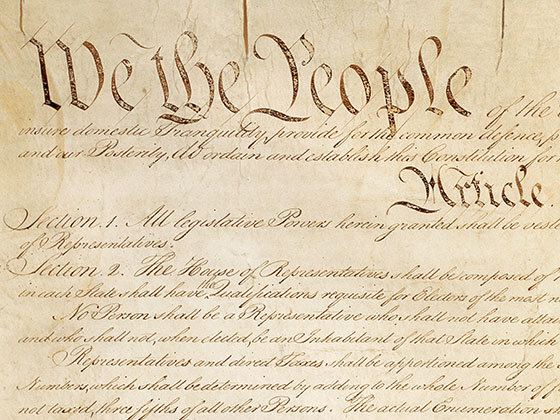 We the People of the
insure domestic Tranquility, provide for the common defence,
and our Posterity, do ordain and establish this Constitution for
Article
Section. 1. All legislative Powers herein granted shall be veste
of Representatives.
Section. 2. The House of Representatives shall be composed of
in each State shall have the Qualifications requisite for Electors of the most
No Person shall be a Representative who shall not have attai
and who shall not, when elected, be an Inhabitant of that State in which
Representatives and direct Taxes shall be apportioned among the
Numbers, which shall be determined by adding to the whole Number of f
not taxed, three fifths of all other Persons. The actual Enumeration